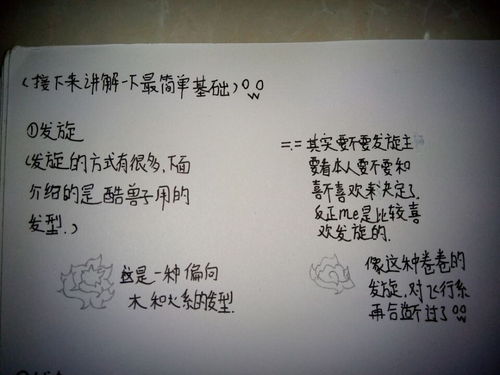 (接下来讲解一下最简单基础)
①发旋
(发旋的方式有很多,下面
介绍的是酷兽子用的
发型.)
这是一种偏向
木和火系的发型.
=.= 其实要不要发旋主
要看本人要不要和
喜不喜欢来决定了.
反正me是比较喜
欢发旋的.
像这种卷卷的
发旋,对飞行系
再合适不过了